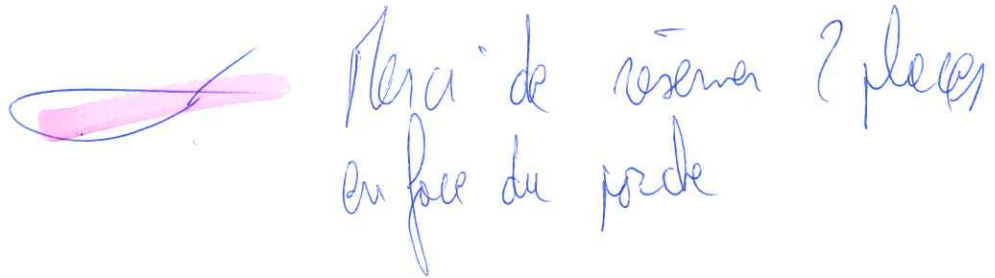 Merci de réserver 2 places
en face du porche